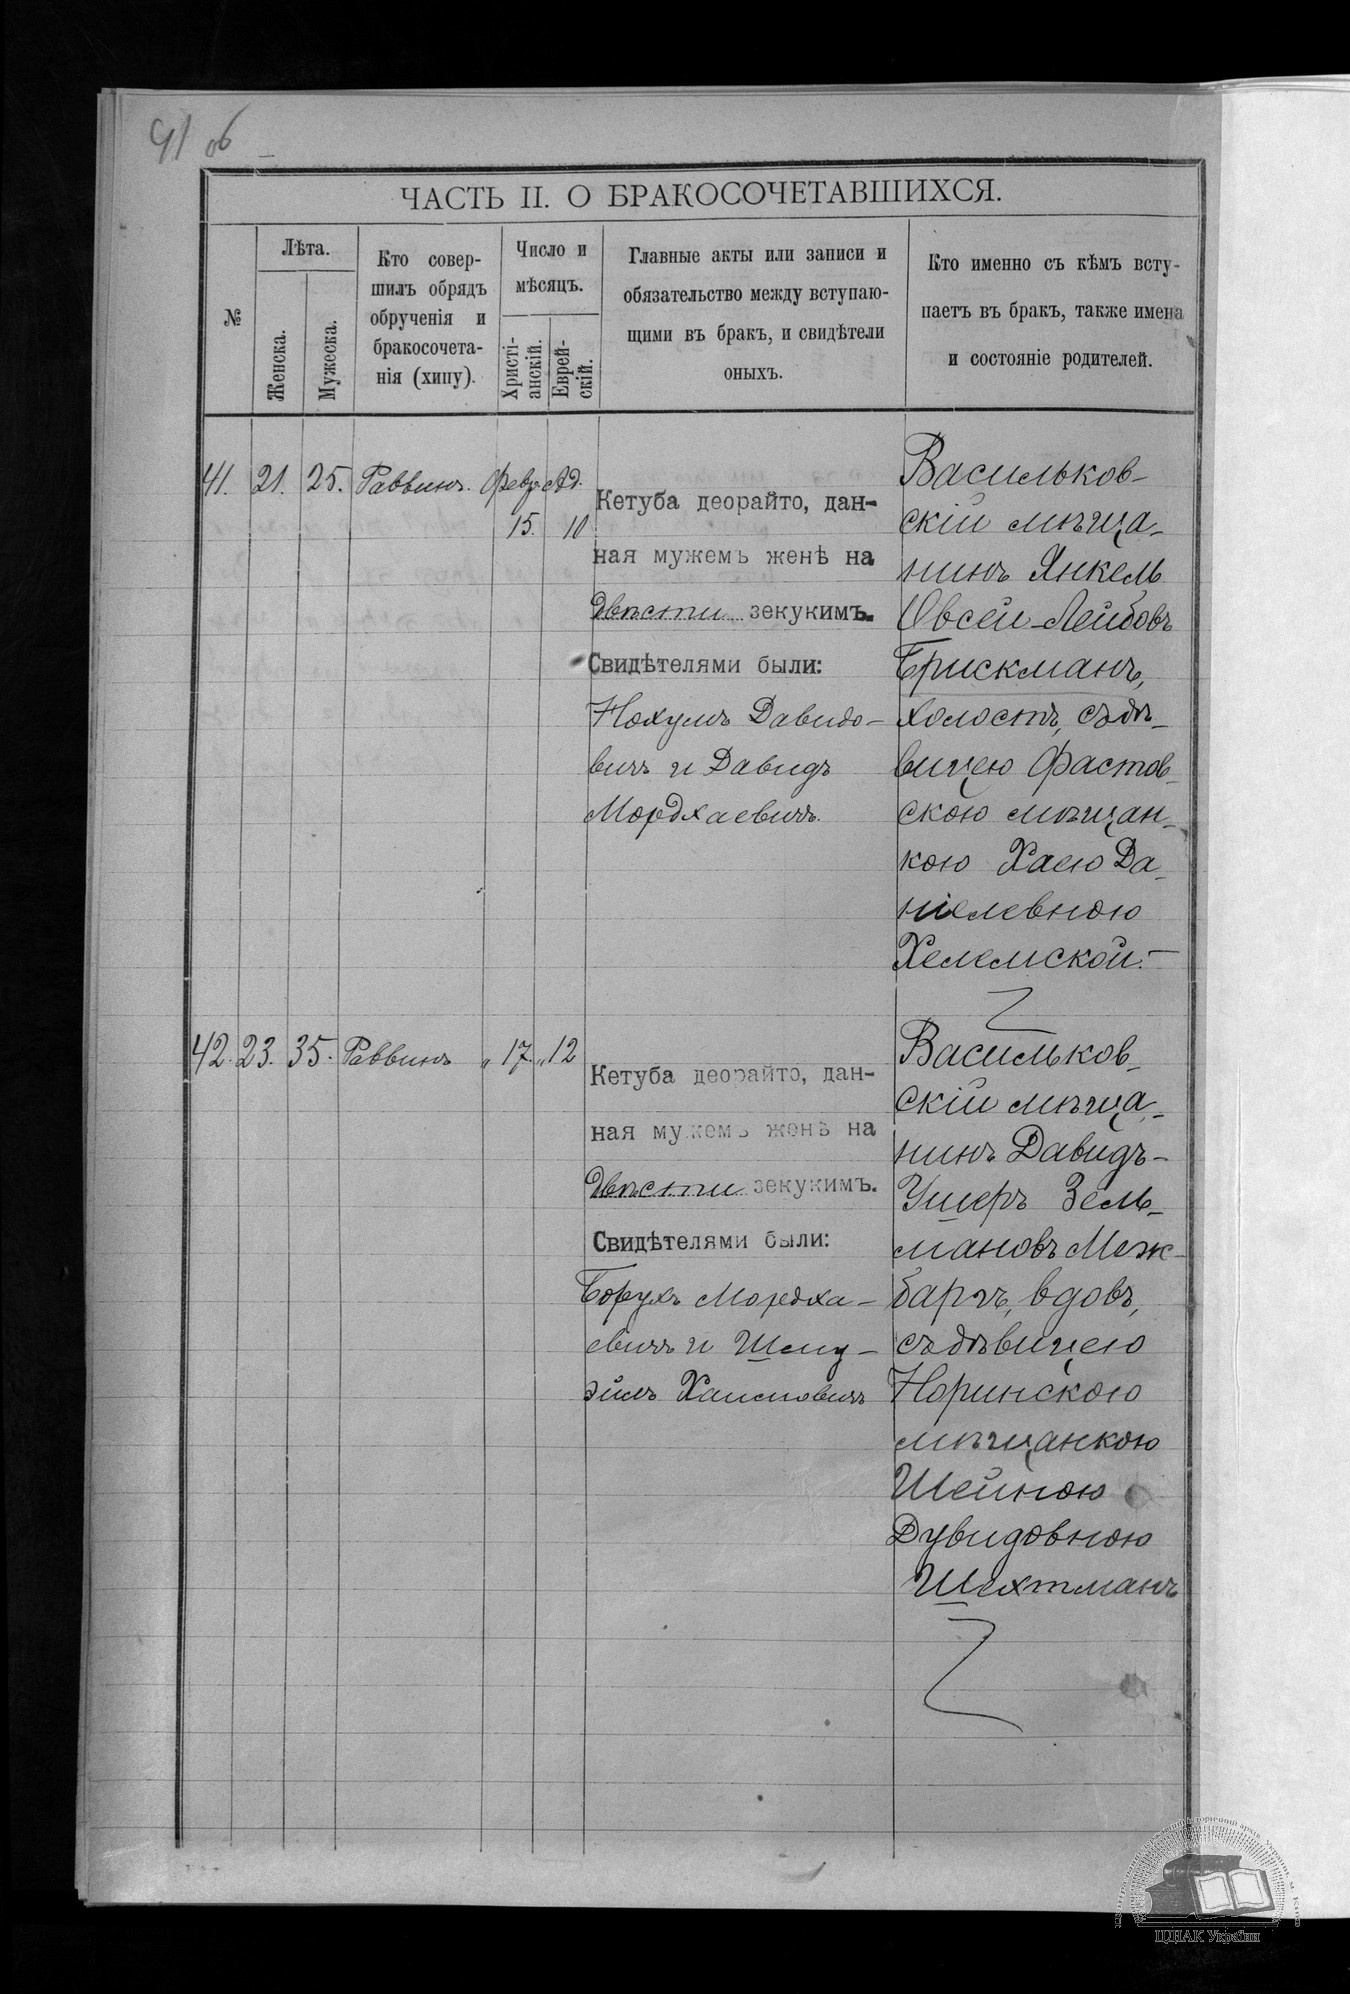 91 об
ЧАСТЬ II. О БРАКОСОЧЕТАВШИХСЯ.
№
Лѣта.
Женска.
Мужеска.
Кто совер-
шилъ обрядъ
обрученія и
бракосочета-
нія (хипу).
Число и
мѣсяцъ.
Христі-
анскій.
Еврей-
скій.
Главные акты или записи и
обязательство между вступаю-
щими въ бракъ, и свидѣтели
оныхъ.
Кто именно съ кѣмъ всту-
паетъ въ бракъ, также имена
и состояніе родителей.
41. 21. 25. Раввинъ. Февр. Ад.
15. 10
Кетуба деорайто, дан-
ная мужемъ женѣ на
двѣсти зекукимъ.
Свидѣтелями были:
Нохумъ Давидо-
вичъ и Давидъ
Мордхаевичъ.
Васильков-
скій мѣща-
нинъ Янкель
Овсей-Лейбовъ
Брискманъ,
холостъ, съ дѣ-
вицею Фастов-
скою мѣщан-
кою Хаею Да-
ніелевною
Хелемской.-
42. 23. 35. Раввинъ „ 17. „ 12
Кетуба деорайто, дан-
ная мужемъ женѣ на
двѣсти зекукимъ.
Свидѣтелями были:
Борухъ Мордха-
евичъ и Шму-
эйль Хаимовичъ
Васильков-
скій мѣща-
нинъ Давидъ-
Ушеръ Зель-
мановъ Меж-
баргъ, вдовъ,
съ дѣвицею
Норинскою
мѣщанкою
Шейною
Дувидовною
Шехтманъ
ЦДІАК України